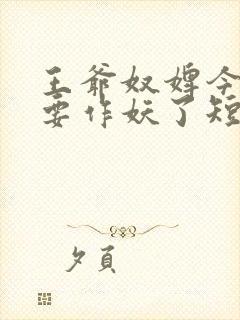 王爷奴婢今
要作妖了短
夕頁